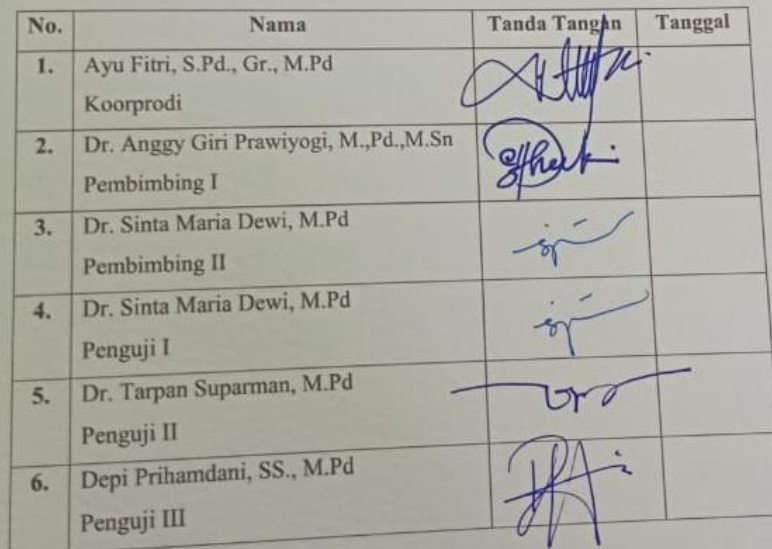 No. Nama Tanda Tangan Tanggal
1. Ayu Fitri, S.Pd., Gr., M.Pd
Koorprodi
2. Dr. Anggy Giri Prawiyogi, M.,Pd.,M.Sn
Pembimbing I
3. Dr. Sinta Maria Dewi, M.Pd
Pembimbing II
4. Dr. Sinta Maria Dewi, M.Pd
Penguji I
5. Dr. Tarpan Suparman, M.Pd
Penguji II
6. Depi Prihamdani, SS., M.Pd
Penguji III